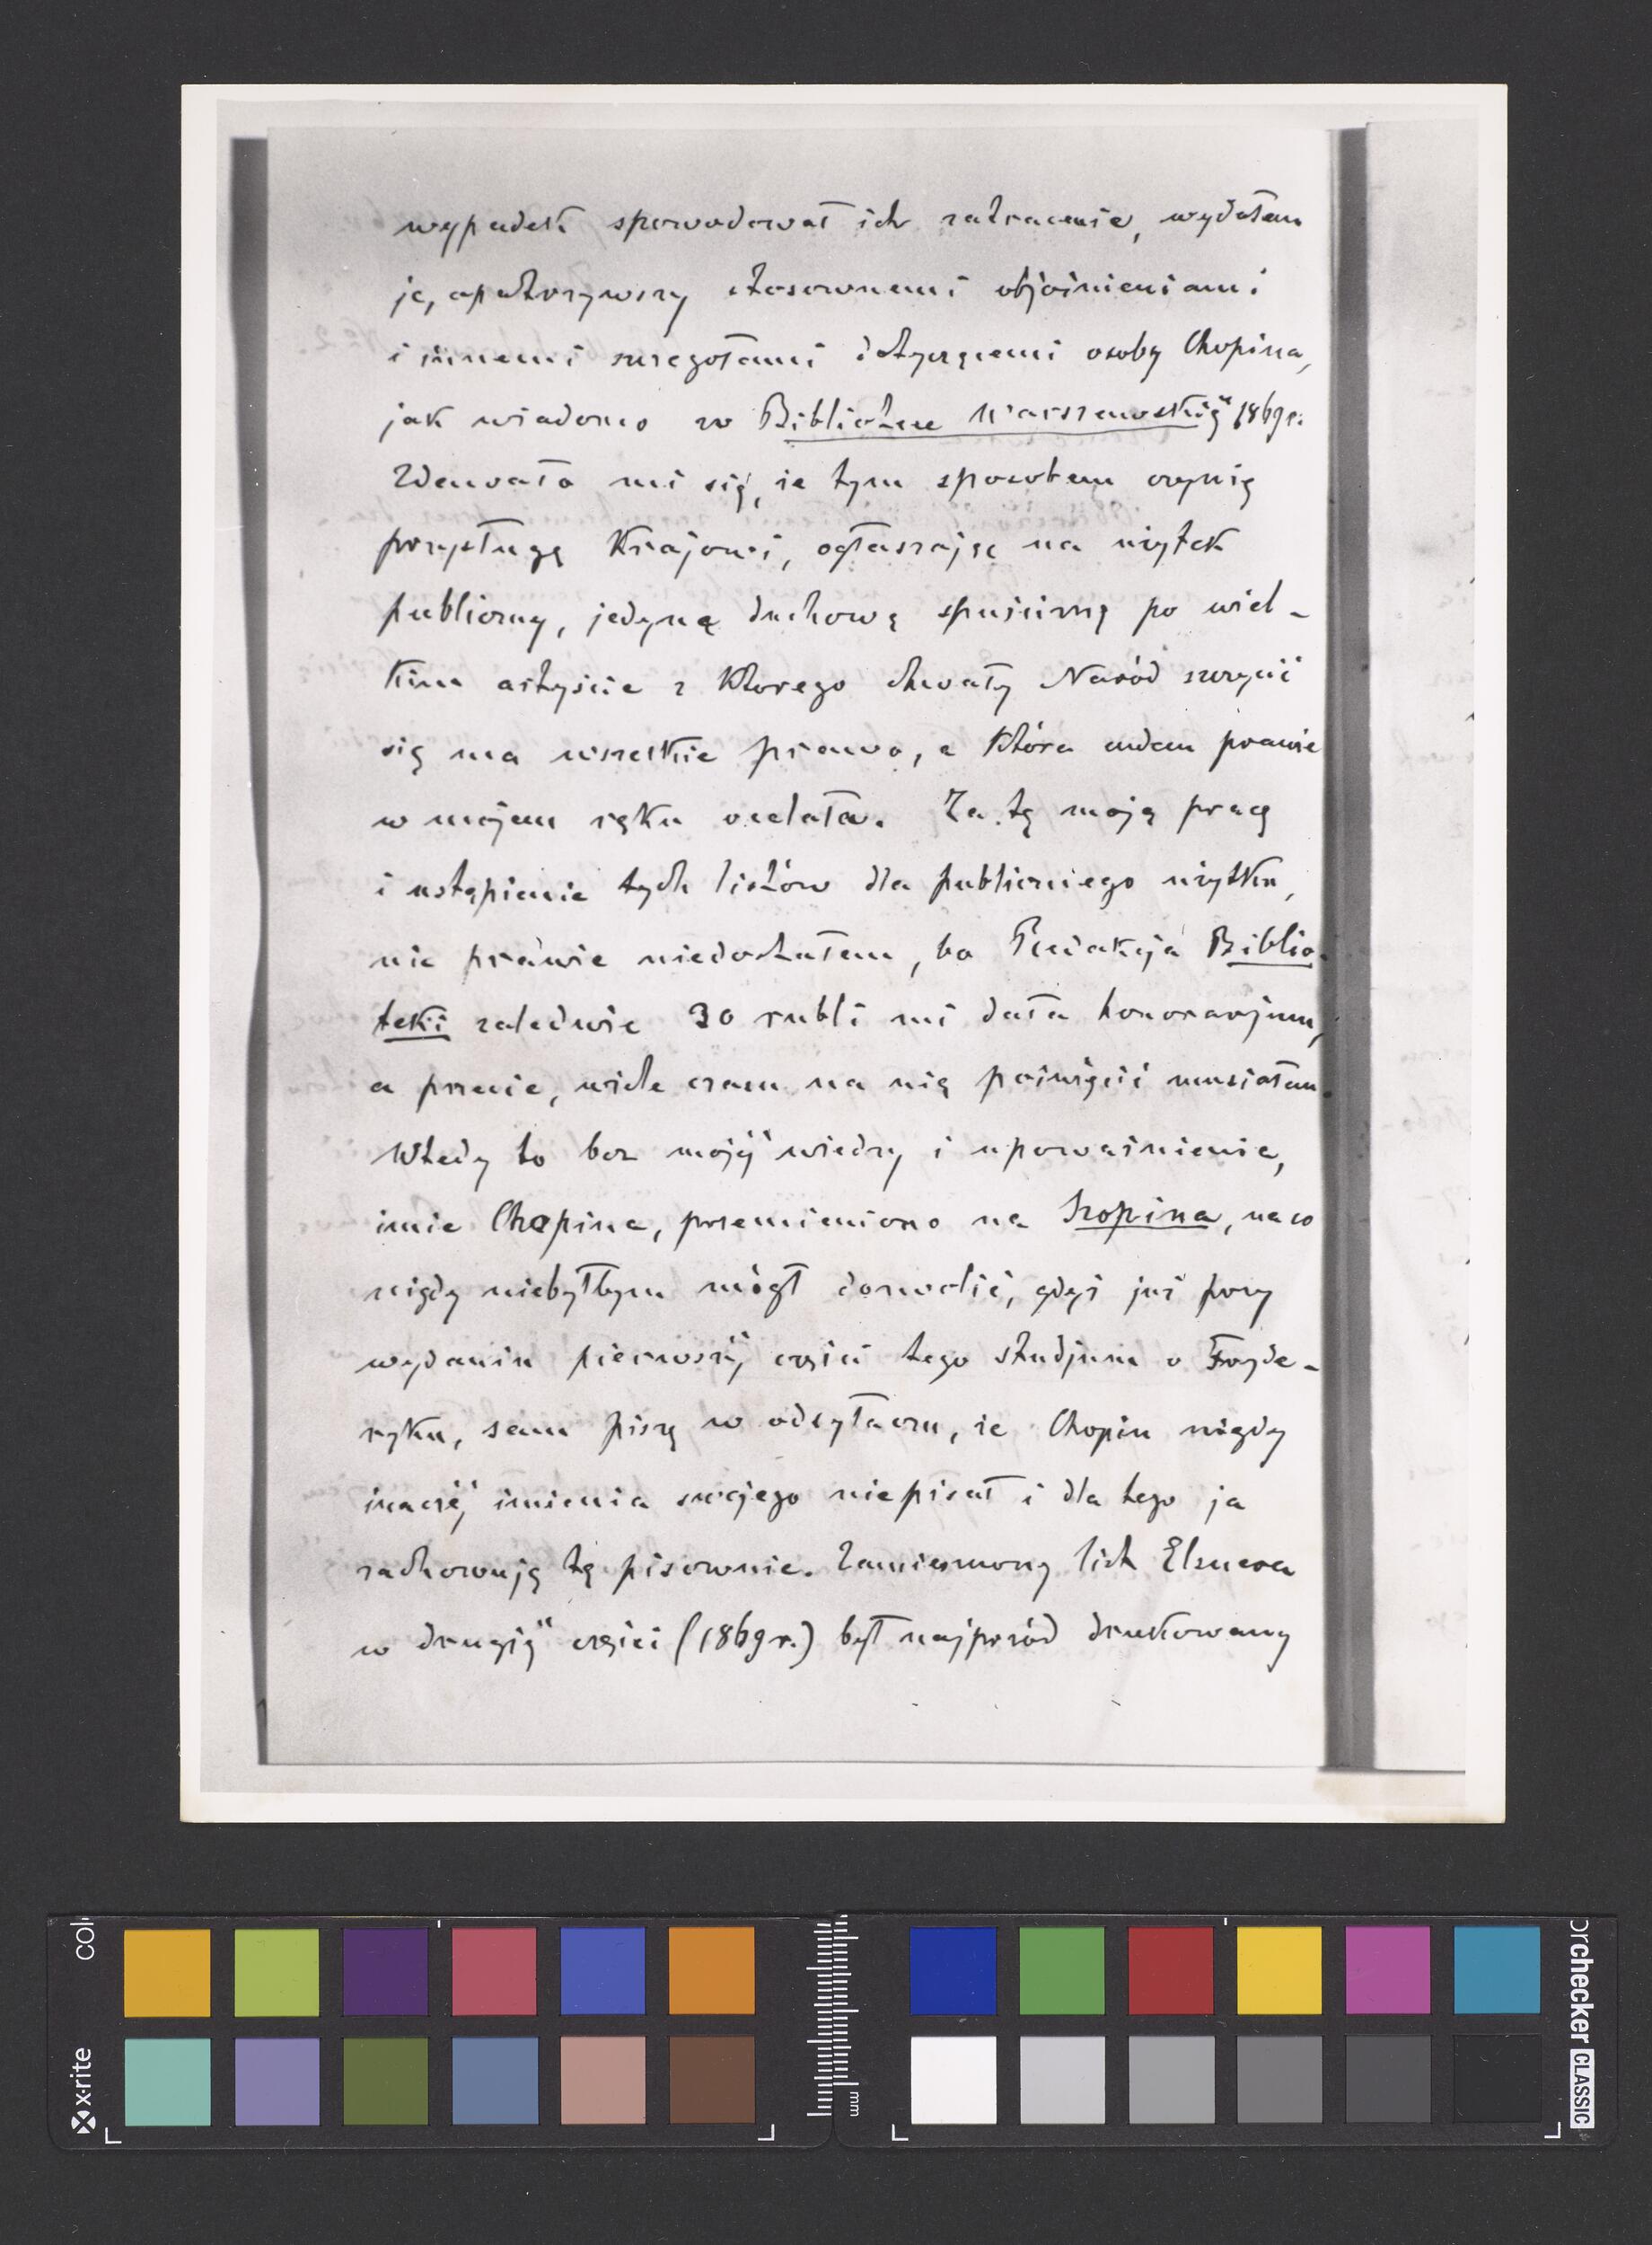 wypadek spowodował ich zatracenie, wydałem
je, opatrzywszy stosownemi objaśnieniami
i innemi szczegołami dotyczącemi osoby Chopina,
jak wiadomo w Bibliotece Warszewskiéj 1869 r.
Zdawało mi się, że tym sposobem czynię
przysługę Krajowi, ogłaszając na użytek
publiczny, jedyną duchową spuściznę po wiel-
kim artyście z którego chwały Naród szczycić
się ma wszelkie prawo, a która cudem prawie
w mojem ręku ocalała. Za tę moją pracę
i ustąpienie tych listów dla publicznego użytku,
nic prawie niedostałem, bo Redakcja Biblio-
teki zaledwie 30 rubli mi dała honorarjum,
a przecie, wiele czasu na nią poświęcić musiałem.
Wtedy to bez mojéj wiedzy i upoważnienia,
imie Chopina, przemieniono na Szopina, na co
nigdy niebyłbym mógł dozwolić, gdyż już przy
wydaniu pierwszéj części tego studjum o Fryde-
ryku, sam piszę w odsyłaczu, że Chopin nigdy
inaczéj imienia swojego niepisał i dla tego ja
zachowuję tę pisownie. Zamieszczony list Elsnera
w drugiéj części (1869 r.) był najprzód drukowany
COL
x-rite
mm
orchecker CLASSIC